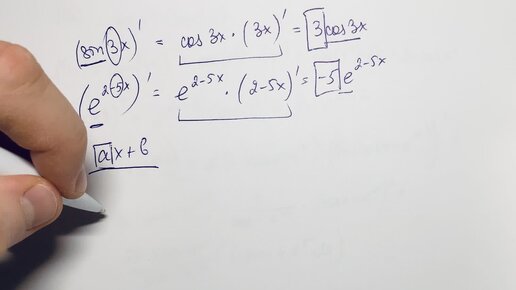 (sin 3x)' = cos 3x · (3x)' = 3 cos 3x
(e^{2-5x})' = e^{2-5x} · (2-5x)' = -5 e^{2-5x}
ax + b